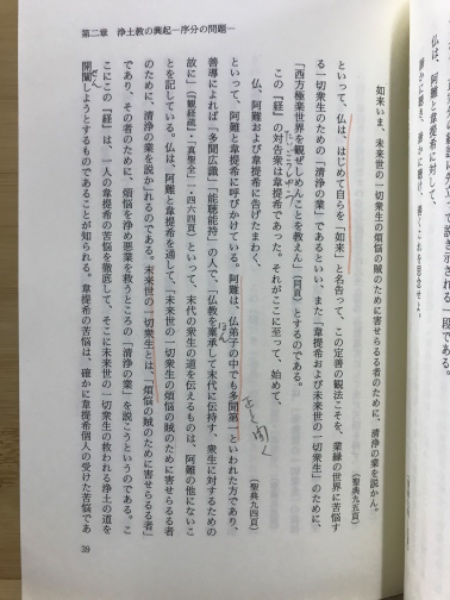 第二章　浄土教の興起―序分の問題―
仏は、阿難と韋提希に対して、
如来いま、未来世の一切衆生の煩悩の賊のために害せらるる者のために、清浄の業を説かん。
(聖典九五頁)
といって、仏は、はじめて自らを「如来」と名告って、この定善の観法こそを、業縁の世界に苦悩す
る一切衆生のための「清浄の業」であるといい、また「韋提希および未来世の一切衆生」のために、
「西方極楽世界を観ぜしめんことを教えん」(同頁)とするのである。
たいごうしゅう
この『経』の対告衆は韋提希であった。それがここに至って、始めて、
仏、阿難および韋提希に告げたまわく、
(聖典九四頁)
といって、阿難と韋提希に呼びかけている。阿難は、仏弟子の中でも多聞第一といわれた方であり、
善導によれば「多聞広識」「能聴能持」の人で、「仏教を稟承して末代に伝持す、衆生に対するための
ほん
多く聞く
故に」(『観経疏』・『真聖全』一・四六四頁)といって、末代の衆生の道を伝えるものは、阿難の他にないこ
とを記している。仏は、阿難と韋提希を通して、「未来世の一切衆生の煩悩の賊のために害せらるる者
のために、清浄の業を説か」れるのである。未来世の一切衆生とは、「煩悩の賊のために害せらるる者」
であり、その者のために、煩悩を浄め悪業を救うところの「清浄の業」を説こうというのである。こ
こにこの『経』は、一人の韋提希の苦悩を徹底して、そこに未来世の一切衆生の救われる浄土の道を
開闡しようとするものであることが知られる。韋提希の苦悩は、確かに韋提希個人の受けた苦悩であ
せん
39